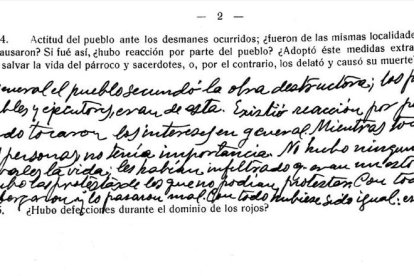 — 2 —
4. Actitud del pueblo ante los desmanes ocurridos; ¿fueron de las mismas localidade
ausaron? Si fué así, ¿hubo reacción por parte del pueblo? ¿Adoptó éste medidas extra
salvar la vida del párroco y sacerdotes, o, por el contrario, los delató y causó su muerte?
eneral el pueblo secundó la obra destructora; los p
bles y ejecutores, eran de esta. Existió reacción por p
do tocaron los intereses en general. Mientras toc
personas, no tenía importancia. No hubo ningun
les la vida; les habían infiltrado
ubo las protestas de los que no podían protestar. Con tod
y lo pasaron mal. Con todo hubiese sido igual: en
5. ¿Hubo defecciones durante el dominio de los rojos?